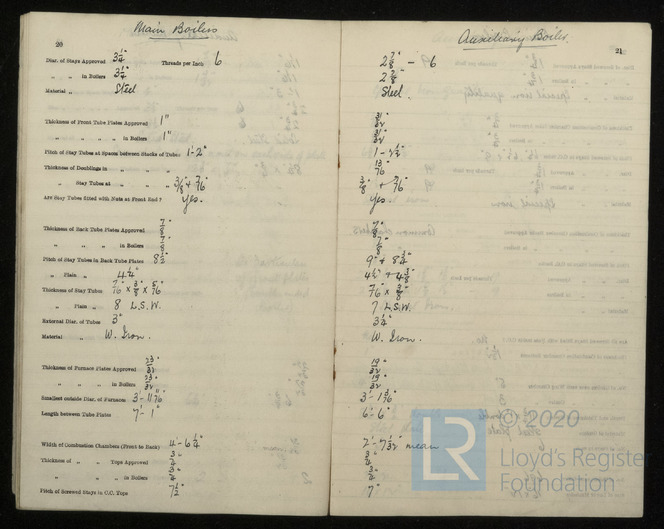 20
Main Boilers
Diar. of Stays Approved 3 1/4" Threads per Inch 6
" " in Boilers 3 1/4"
Material " Steel
Thickness of Front Tube Plates Approved 1"
" " " " in Boilers 1"
Pitch of Stay Tubes at Spaces between Stacks of Tubes 1'-2"
Thickness of Doublings in " "
" Stay Tubes at " " 3/8" + 7/16"
Are Stay Tubes fitted with Nuts at Front End? Yes.
Thickness of Back Tube Plates Approved 7/8"
" " " in Boilers 7/8"
Pitch of Stay Tubes in Back Tube Plates 8 1/2"
" Plain " 4 1/4"
Thickness of Stay Tubes 7/16" × 3/8" × 5/16"
" Plain " 8 L.S.W.
External Diar. of Tubes 3"
Material " W. Iron.
Thickness of Furnace Plates Approved 23/32"
" " " in Boilers 23/32"
Smallest outside Diar. of Furnaces
Length between Tube Plates 7'-1"
Width of Combustion Chambers (Front to Back) 4-6 1/4"
Thickness of " " Tops Approved 3/4"
" " " in Boilers 3/4"
Pitch of Screwed Stays in C.C. Tops 7 1/2"
21
Auxiliary Boiler.
2 7/8" - 6
2 7/8"
Steel.
31/32"
31/32"
1-2 1/2"
13/16"
3/8" + 7/16"
Yes
7/8"
7/8"
9" + 8 3/4"
4 1/2" + 4 3/8"
7/16" × 3/8"
7 L.S.W.
3 1/4"
W. Iron.
19/32"
19/32"
6-6"
2'-7 7/32" mean
3/4"
3/4"
7"
© 2020
LR
Lloyd's Register
Foundation